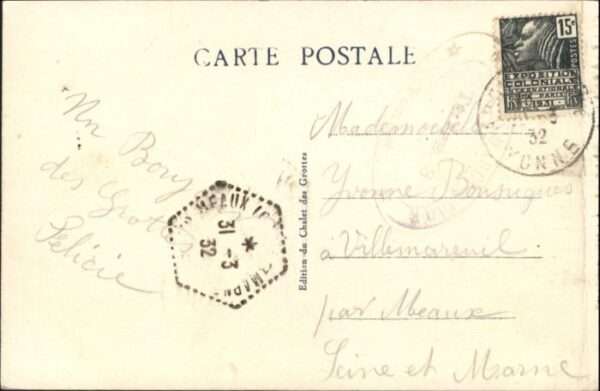 CARTE POSTALE
15c
POSTES
EXPOSITION
COLONIALE
INTERNATIONALE
PARIS
1931
32
YONNE
Un Bonj
des Grottes
Félicie
MEAUX
31 - 3
32
Edition du Chalet des Grottes
Mademoiselle
Yvonne
à Villemareuil
par Meaux
Seine et Marne